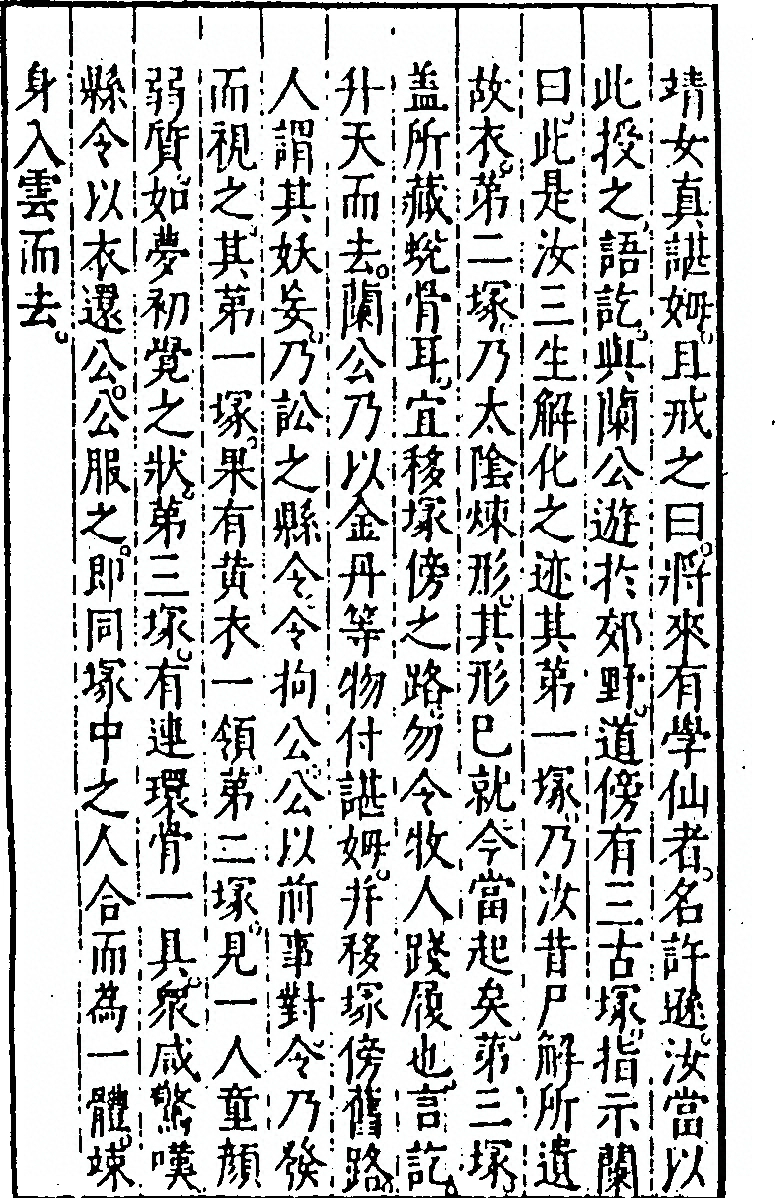 靖女真諶姆。且戒之曰。將來有學仙者。名許遜。汝當以
此授之。語訖。與蘭公遊於郊野。道傍有三古塚。指示蘭
曰。此是汝三生解化之迹其第一塚。乃汝昔尸解所遺
故衣。第二塚。乃太陰煉形。其形已就。今當起矣。第三塚。
盖所藏蛻骨耳。宜移塚傍之路。勿令牧人踐履也。言訖。
升天而去。蘭公乃以金丹等物付諶姆。并移塚傍舊路。
人謂其妖妄。乃訟之縣令。令拘公。公以前事對。令乃發
而視之。其第一塚。果有黄衣一領。第二塚。見一人童顔
弱質。如夢初覺之狀。第三塚。有連環骨一具。衆咸驚嘆
縣令以衣還公。公服之。即同塚中之人合而為一體。竦
身入雲而去。